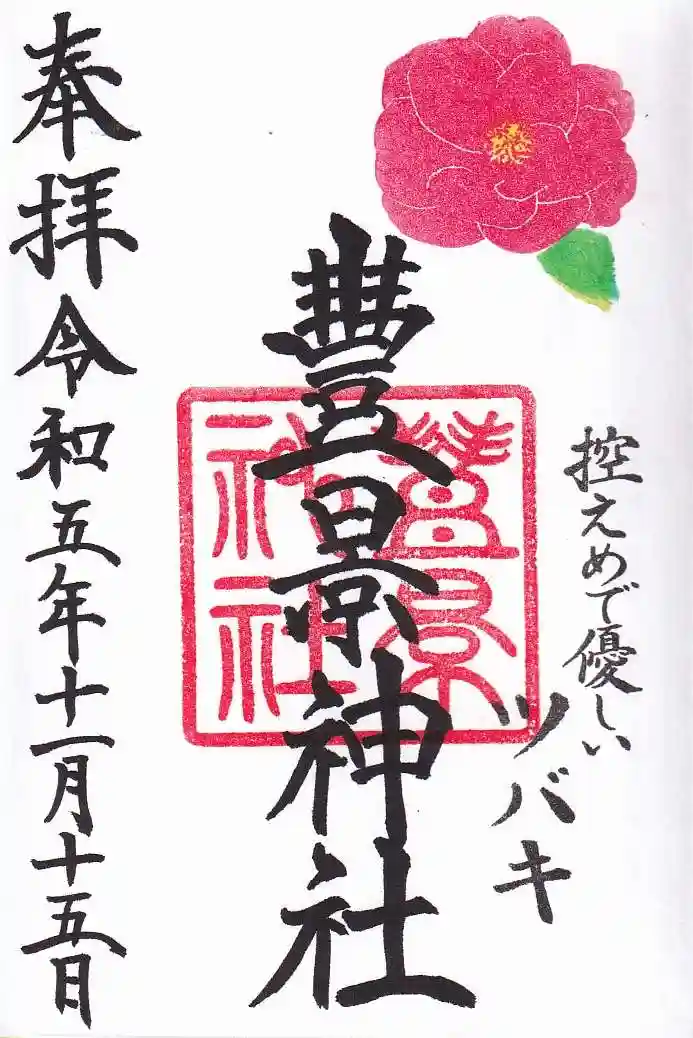 控えめで優しい
ツバキ
豊景神社
豊景
神社
奉拝令和五年十一月十五日